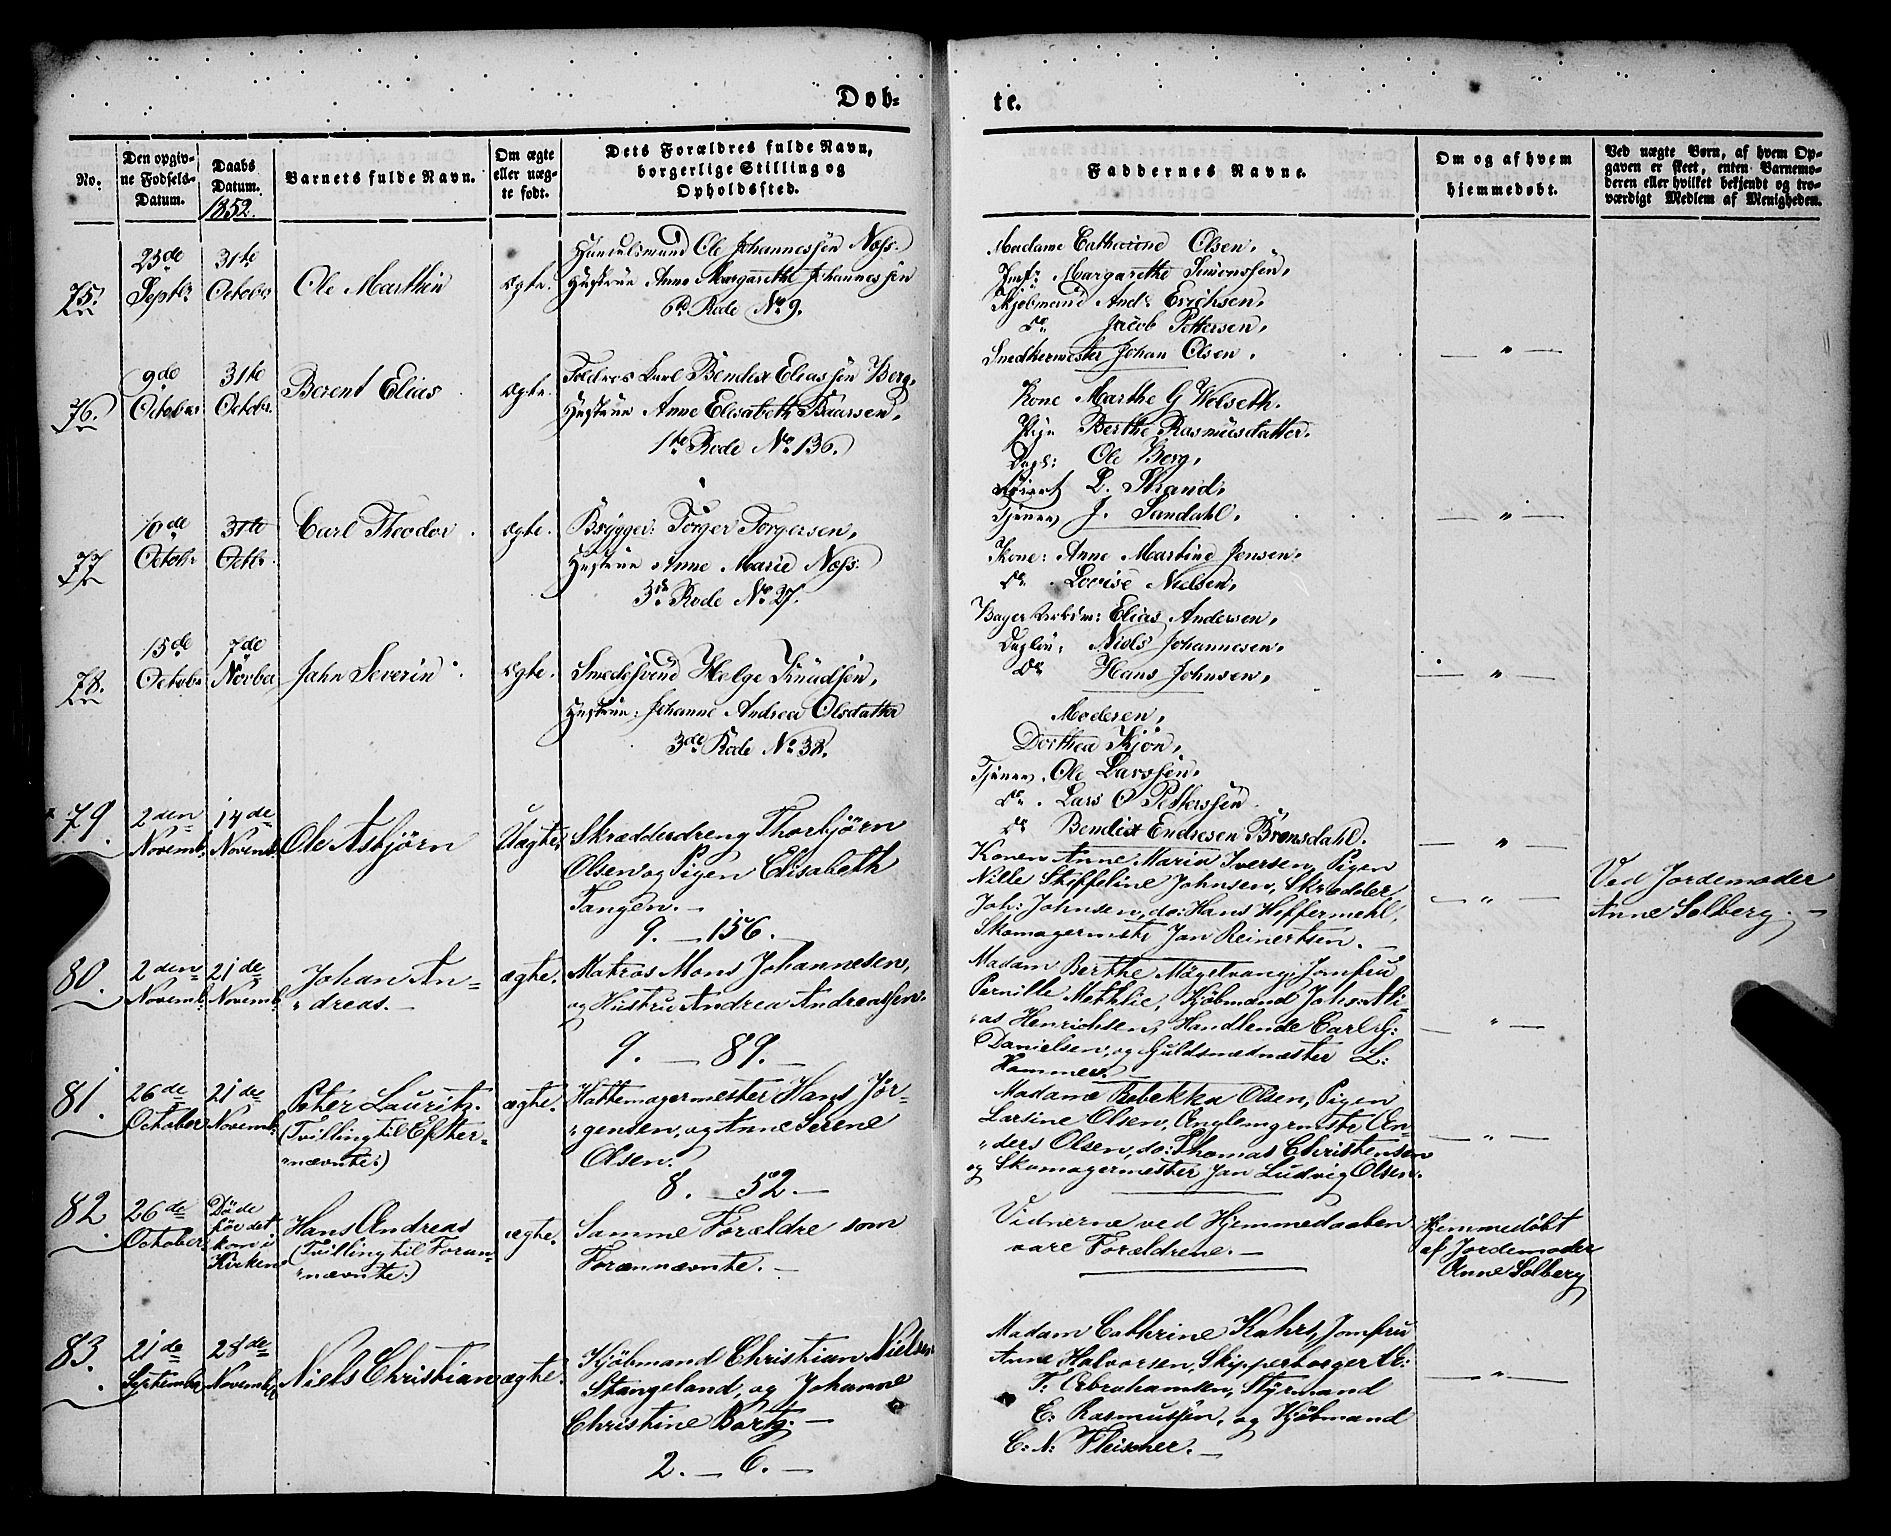 Døb=
te.
No.
Den opgiv-
ne Fødsels-
Datum.
Daabs
Datum.
1852.
Barnets fulde Navn.
Om ægte
eller uæg-
te født.
Dets Forældres fulde Navn,
borgerlige Stilling og
Opholdssted.
Faddernes Navne.
Om og af hvem
hjemmedøbt.
Ved uægte Børn, af hvem Op-
gaven er skeet, enten Barnemo-
deren eller hvilket bekjendt og tro-
værdigt Medlem af Menigheden.
75.
23de
Septbr
31te
October
Ole Marthin
ægte.
Ole Johannessen Næss.
Hustrue Anne Margarethe Johannessen
6te Rode No 9.
Madame Cathrine Olsen,
Jmfr: Margarethe Simonssen,
Kjøbmand And: Erichsen,
Do Jacob Pettersen,
Snedkermester Johan Olsen.
— " —
76.
9de
October
31te
Octobr.
Berent Elias
ægte.
Carl Bendix Eliassen Berg,
Hustrue Anne Elisabeth Baarsen,
1te Rode No 136.
Kone Marthe G Welseth.
Pige Berthe Rasmusdatter.
Dagl: Ole Berg,
L. Strand,
J. Sandahl.
— " —
77
10de
Octob:
31te
Octb:
Carl Theodor.
ægte.
Brygger: Torger Torgersen,
Hustrue Anne Marie Næss.
3de Rode No 27.
Kone: Anne Martine Jensen.
Do Lovise Nielsen,
Elias Andersen,
Niels Johannesen,
Do Hans Johnsen,
— " —
78.
15de
October
7de
Novber
Jahn Severin.
ægte.
Smedsvend Helge Knudsen,
Hustrue: Johanne Andrea Olsdatter
3de Rode No 38.
Moderen,
Dorthea Kjøn,
Ole Larssen,
Do. Lars O Petterssen
Do Bendix Endresen Brønsdahl.
— " —
79.
2den
Novemb.
14de
Novemb.
Ole Asbjørn
Uægte,
Skrædderdreng Thorbjørn
Olsen og Pigen Elisabeth
Tangen. —
9. — 156. —
Konen Anne Maria Iversen, Pigen
Nille Steffeline Johnsen, Skrædder
Joh: Johnsen, do: Hans Heffermehl,
Skomagermstr Jan Reinertsen. —
— " —
Ved Jordemoder
Anne Solberg. —
80.
2den
Novemb.
21de
Novemb.
Johan An=
=dreas. —
ægte.
Matros Mons Johannesen,
og Hustru Andrea Andreassen.
9. — 89. —
Madam Berthe Møgelvang, Jomfru
Pernille Methlie, Kjøbmand Johs: Ali=
=as Henrichsen, Handlende Carl G:
Danielsen, og Guldsmedmester L:
Hammer. —
— " —
81.
26de
October
21de
Novemb.
Peter Lauritz.
(Tvilling til Efter=
=nævnte.)
ægte.
Hattemagermester Hans Jør=
=gensen, og Anne Serene
Olsen.
8. — 52. —
Madame Rebekka Olsen, Pigen
Lartine Olsen, An=
=ders Olsen, do: Thomas Christensen
og Skomagermester Jan Ludvig Olsen.
— " —
82.
26de
October.
Døde
før det
kom i
Kirken
Hans Andreas
(Tvilling til Foran=
=nævnte.)
ægte.
Samme Forældre som
Forannævnte. —
Vidnerne ved Hjemmedaaben
vare Forældrene. —
Hjemmedøbt
af Jordemoder
Anne Solberg
83.
21de
September
28de
November
Niels Christian
ægte.
Kjøbmand Christian Nielsen
Stangeland, og Johanne
Christine Bartz. —
2. — 6. —
Madam Cathrine Kahrs, Jomfru
Anne Halvorsen, Skipperborger
T: Abrahamsen, Styrmand
E: Rasmussen, og Kjøbmand
C: N: Fleischer. —
— " —